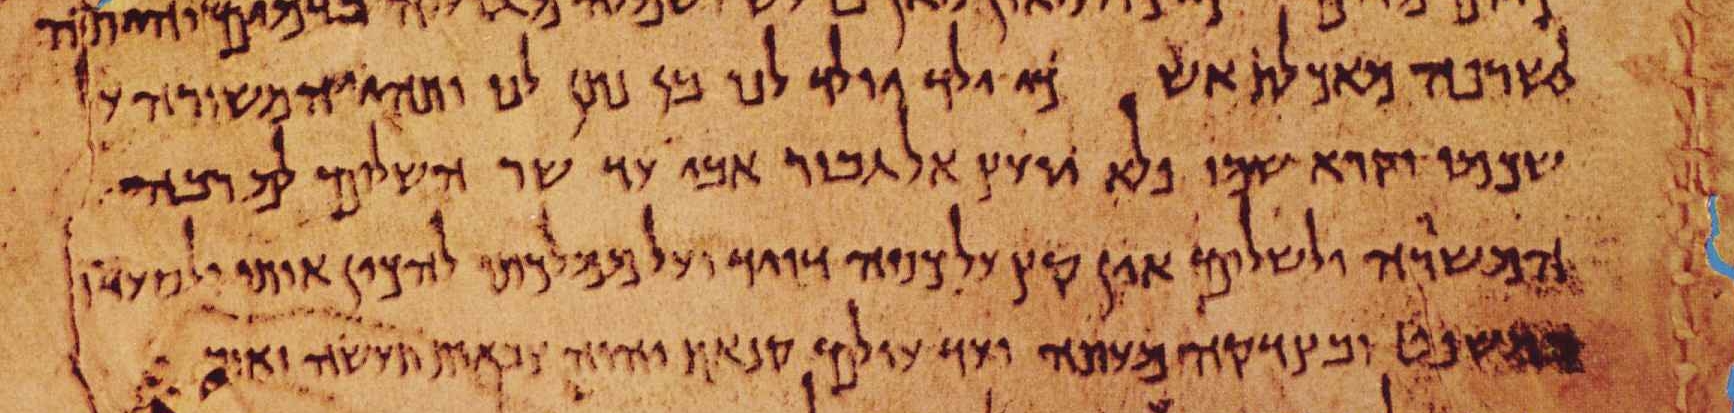 לשרפה מאכלת אש כי ילד יולד לנו בן נתן לנו ותהי המשורה
שכמו וקרא שמו פלא יועץ אל גבור אבי עד שר השלום לםרבה
המשורה ולשלום אין קץ על כסה דויד ועל ממלכתו להכין אותו
במשפט ובצדקה מעתה ועד עולם קנאת יהוה צבאות תעשה